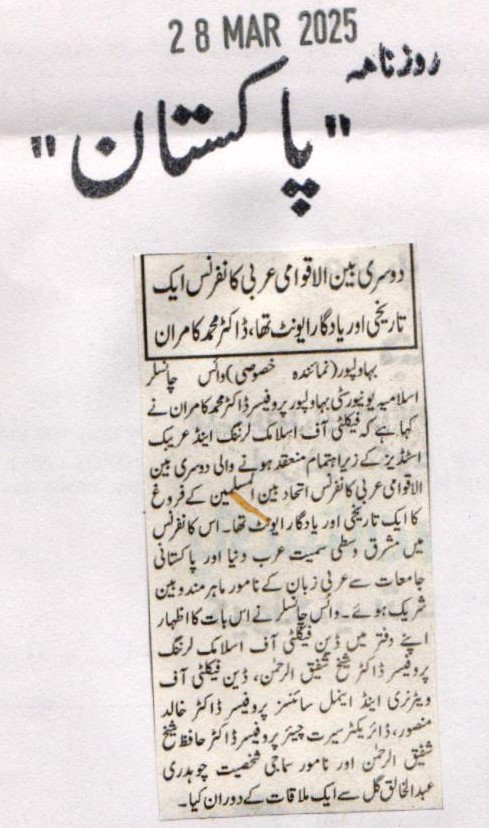 28 MAR 2025
روزنامہ
"پاکستان"
دوسری بین الاقوامی عربی کانفرنس ایک
تاریخی اور یادگار ایونٹ تھا، ڈاکٹر محمد کامران
بہاولپور (نمائندہ خصوصی) وائس چانسلر
اسلامیہ یونیورسٹی بہاولپور پروفیسر ڈاکٹر محمد کامران نے
کہا ہے کہ فیکلٹی آف اسلامک لرننگ اینڈ عریبک
اسٹڈیز کے زیر اہتمام منعقد ہونے والی دوسری بین
الاقوامی عربی کانفرنس اتحاد بین المسلمین کے فروغ
کا ایک تاریخی اور یادگار ایونٹ تھا۔ اس کانفرنس
میں مشرق وسطی سمیت عرب دنیا اور پاکستانی
جامعات سے عربی زبان کے نامور ماہر مندوبین
شریک ہوئے۔ وائس چانسلر نے اس بات کا اظہار
اپنے دفتر میں ڈین فیکلٹی آف اسلامک لرننگ
پروفیسر ڈاکٹر شیخ شفیق الرحمٰن، ڈین فیکلٹی آف
ویٹرنری اینڈ اینمل سائنسز پروفیسر ڈاکٹر خالد
منصور، ڈائریکٹر سیرت چیئر پروفیسر ڈاکٹر حافظ شیخ
شفیق الرحمٰن اور نامور سماجی شخصیت چوہدری
عبدالخالق گل سے ایک ملاقات کے دوران کیا۔